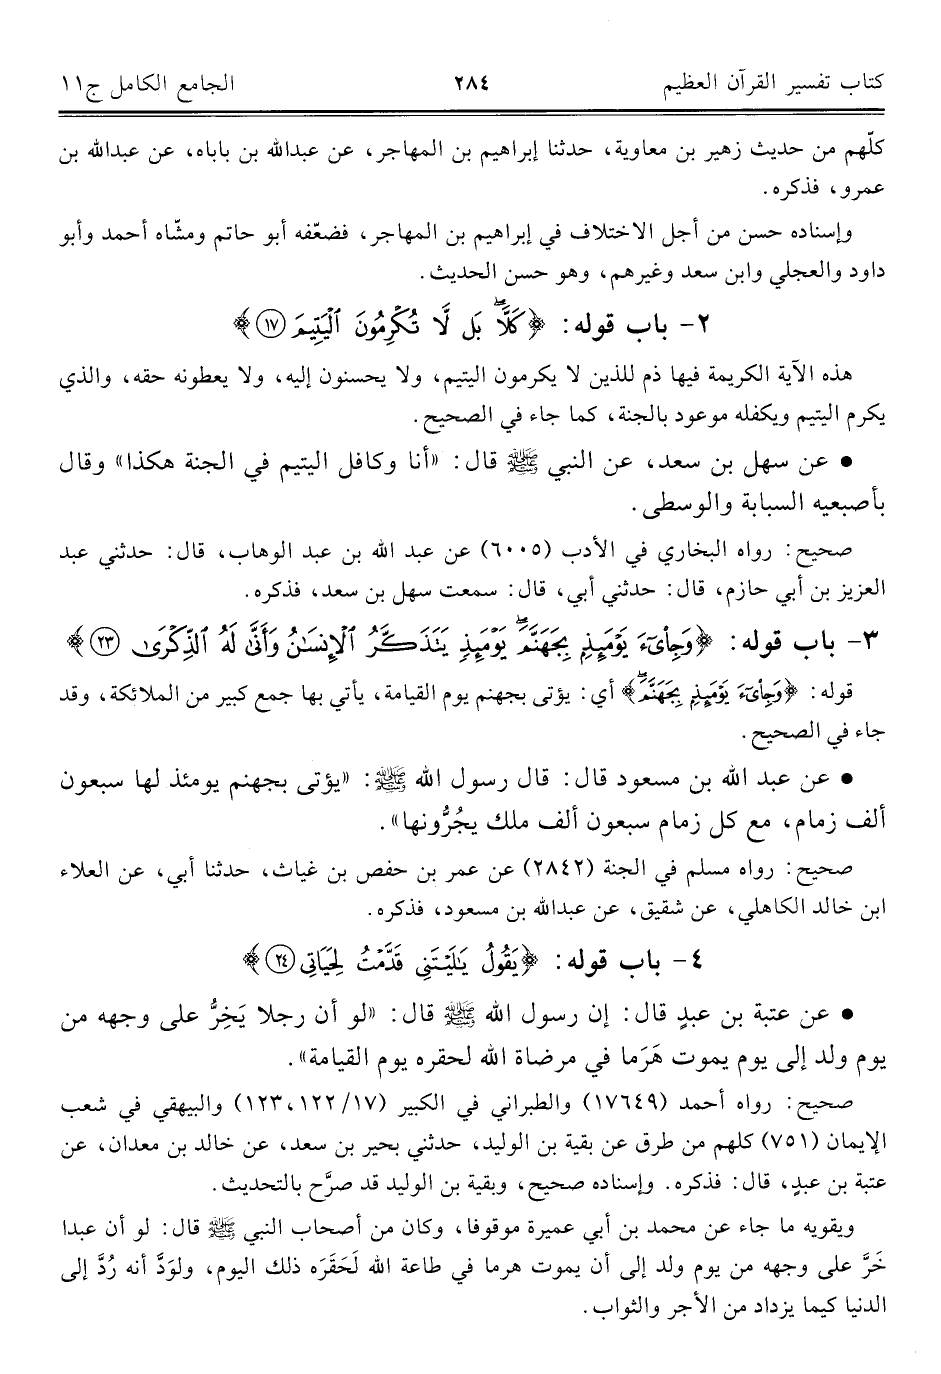 كتاب تفسير القرآن العظيم ٢٨٤ الجامع الكامل ج١١
كلّهم من حديث زهير بن معاوية، حدثنا إبراهيم بن المهاجر، عن عبدالله بن باباه، عن عبدالله بن
عمرو، فذكره.
وإسناده حسن من أجل الاختلاف في إبراهيم بن المهاجر، فضعّفه أبو حاتم ومشّاه أحمد وأبو
داود والعجلي وابن سعد وغيرهم، وهو حسن الحديث.
٢- باب قوله: ﴿كَلَّاۖ بَل لَّا تُكۡرِمُونَ ٱلۡيَتِيمَ ١٧﴾
هذه الآية الكريمة فيها ذم للذين لا يكرمون اليتيم، ولا يحسنون إليه، ولا يعطونه حقه، والذي
يكرم اليتيم ويكفله موعود بالجنة، كما جاء في الصحيح.
• عن سهل بن سعد، عن النبي ﷺ قال: «أنا وكافل اليتيم في الجنة هكذا» وقال
بأصبعيه السبابة والوسطى.
صحيح: رواه البخاري في الأدب (٦٠٠٥) عن عبد الله بن عبد الوهاب، قال: حدثني عبد
العزيز بن أبي حازم، قال: حدثني أبي، قال: سمعت سهل بن سعد، فذكره.
٣- باب قوله: ﴿وَجِاْيٓءَ يَوۡمَئِذِۭ بِجَهَنَّمَۚ يَوۡمَئِذٖ يَتَذَكَّرُ ٱلۡإِنسَٰنُ وَأَنَّىٰ لَهُ ٱلذِّكۡرَىٰ ٢٣﴾
قوله: ﴿وَجِاْيٓءَ يَوۡمَئِذِۭ بِجَهَنَّمَۚ﴾ أي: يؤتى بجهنم يوم القيامة، يأتي بها جمع كبير من الملائكة، وقد
جاء في الصحيح.
• عن عبد الله بن مسعود قال: قال رسول الله ﷺ: «يؤتى بجهنم يومئذ لها سبعون
ألف زمام، مع كل زمام سبعون ألف ملك يجُرُّونها».
صحيح: رواه مسلم في الجنة (٢٨٤٢) عن عمر بن حفص بن غياث، حدثنا أبي، عن العلاء
ابن خالد الكاهلي، عن شقيق، عن عبدالله بن مسعود، فذكره.
٤- باب قوله: ﴿يَقُولُ يَٰلَيۡتَنِي قَدَّمۡتُ لِحَيَاتِي ٢٤﴾
• عن عتبة بن عبدٍ قال: إن رسول الله ﷺ قال: «لو أن رجلا يَخِرُّ على وجهه من
يوم ولد إلى يوم يموت هَرَما في مرضاة الله لحقره يوم القيامة».
صحيح: رواه أحمد (١٧٦٤٩) والطبراني في الكبير (١٧/ ١٢٢، ١٢٣) والبيهقي في شعب
الإيمان (٧٥١) كلهم من طرق عن بقية بن الوليد، حدثني بحير بن سعد، عن خالد بن معدان، عن
عتبة بن عبدٍ، قال: فذكره. وإسناده صحيح، وبقية بن الوليد قد صرَّح بالتحديث.
ويقويه ما جاء عن محمد بن أبي عميرة موقوفا، وكان من أصحاب النبي ﷺ قال: لو أن عبدا
خَرَّ على وجهه من يوم ولد إلى أن يموت هرما في طاعة الله لَحَقَرَه ذلك اليوم، ولوَدَّ أنه رُدَّ إلى
الدنيا كيما يزداد من الأجر والثواب.